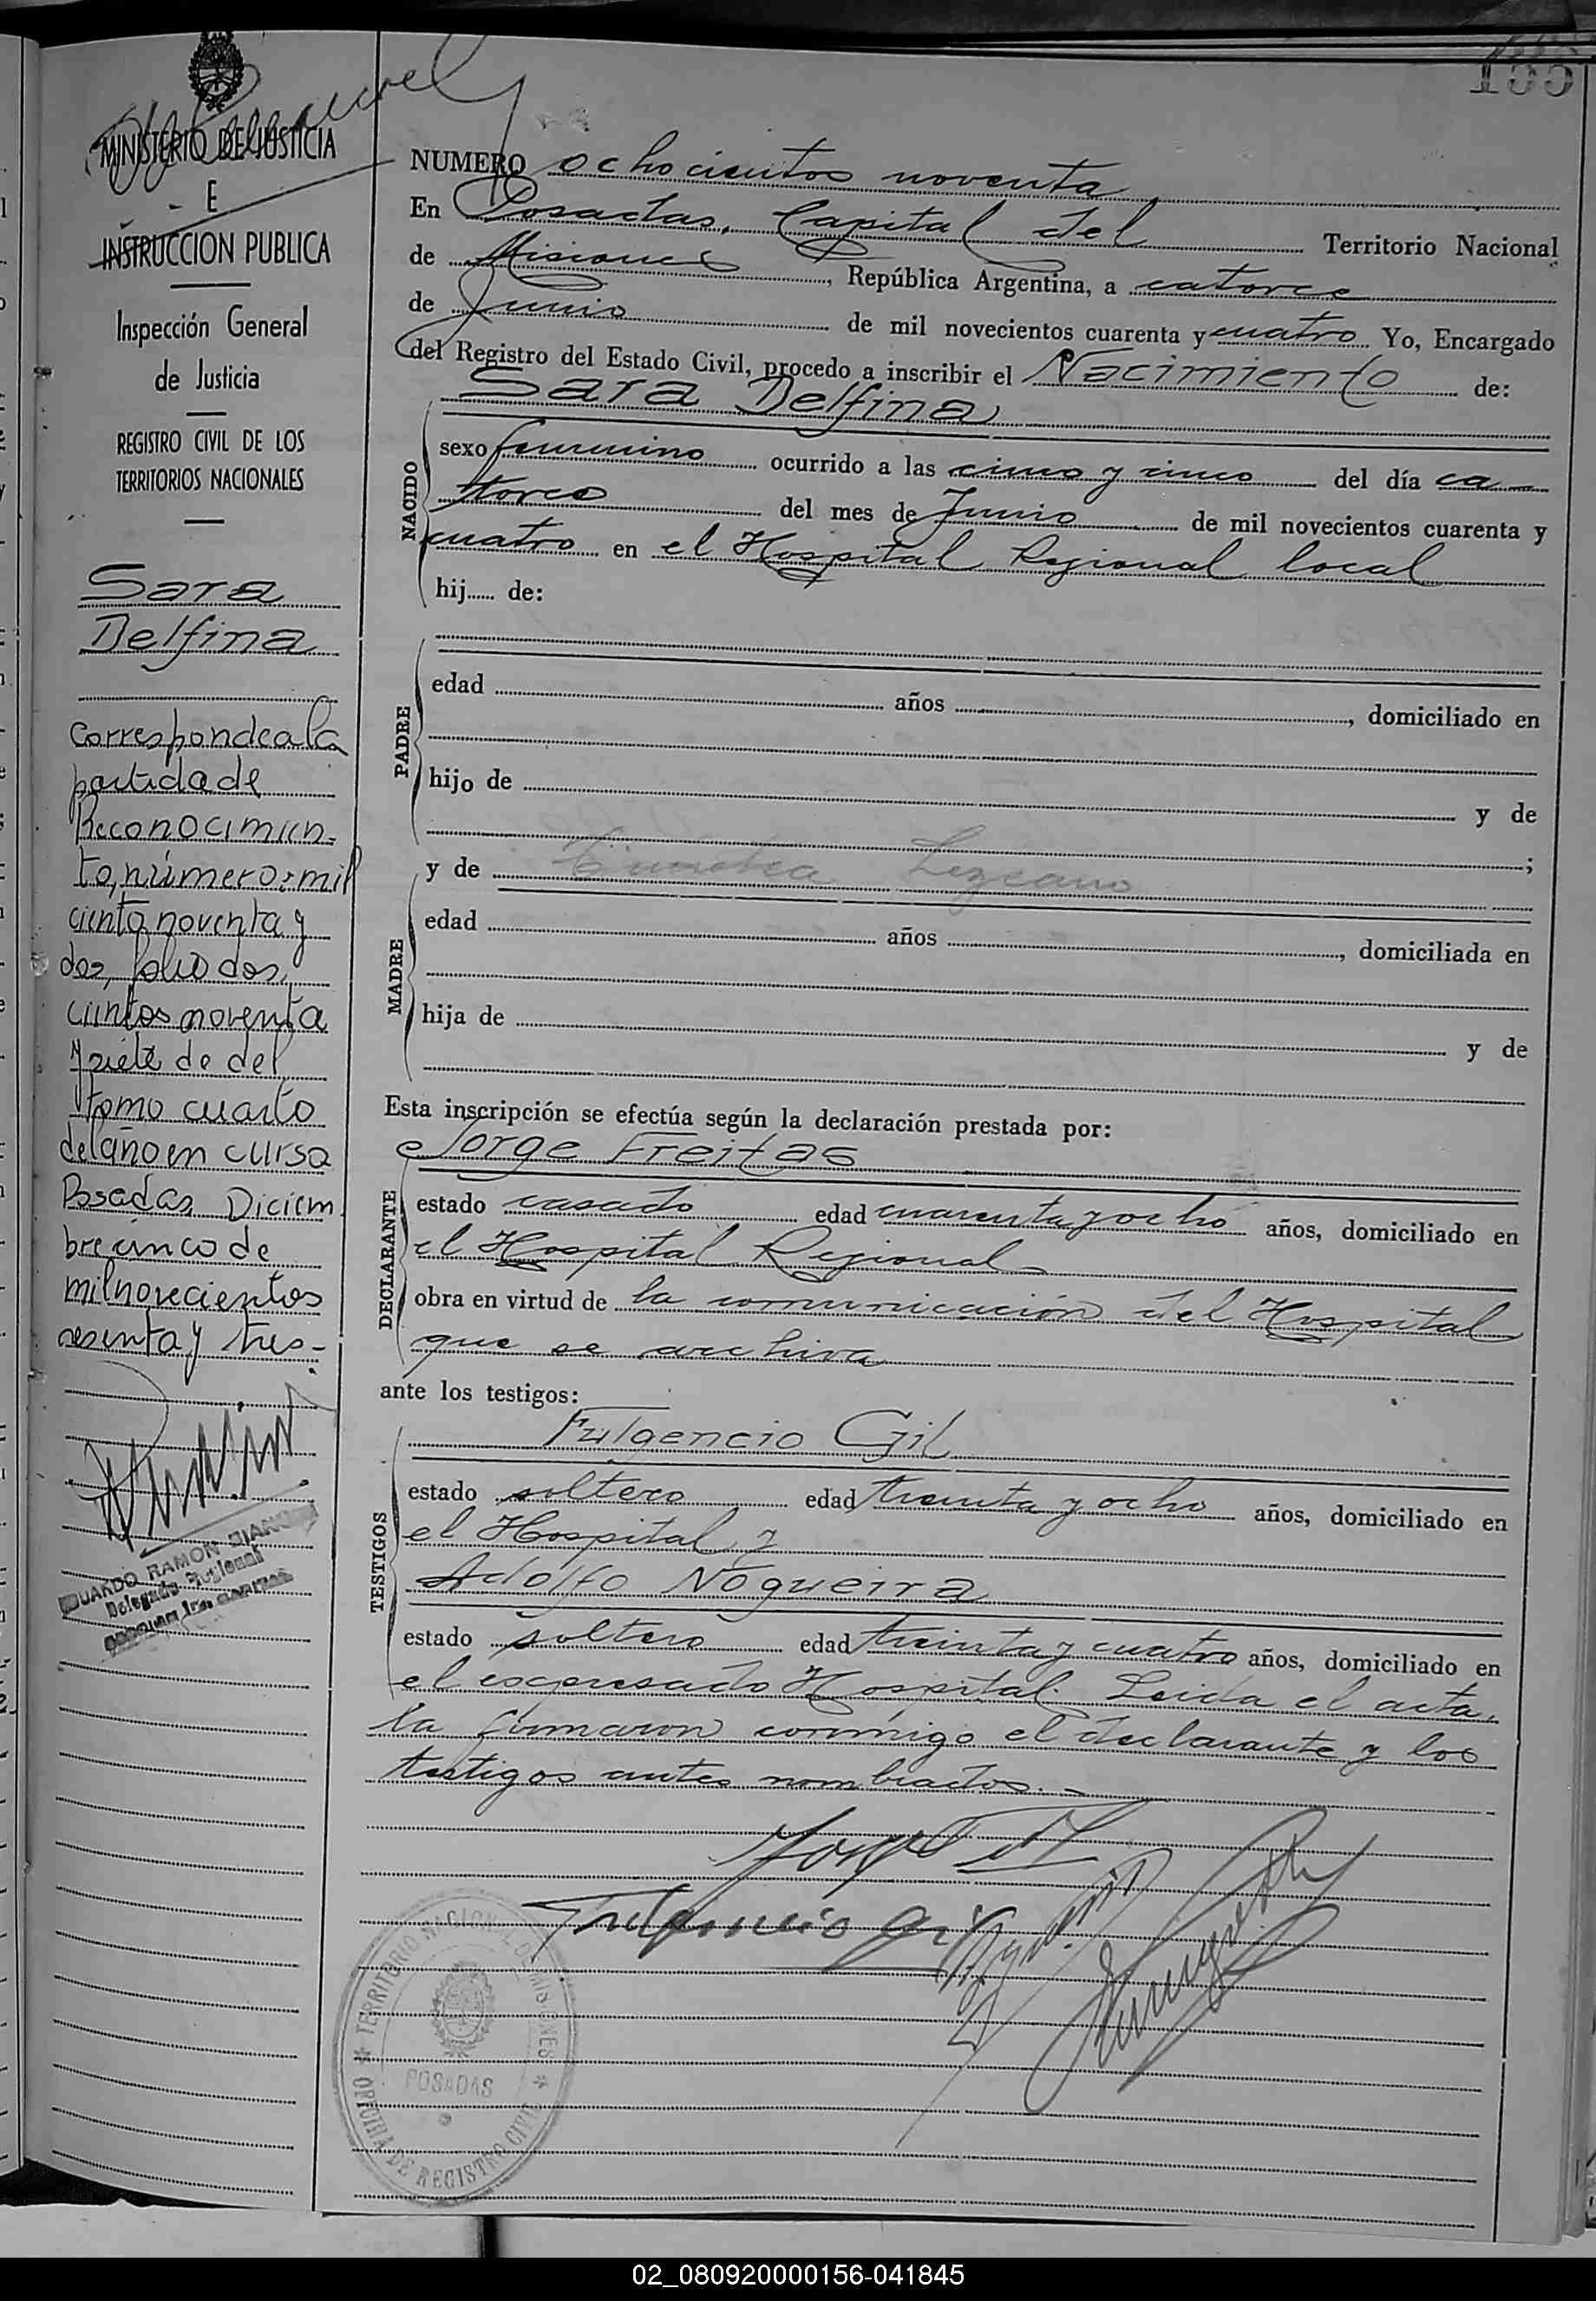 MINISTERIO DE JUSTICIA
E
INSTRUCCION PUBLICA
Inspección General
de Justicia
REGISTRO CIVIL DE LOS
TERRITORIOS NACIONALES
Sara
Delfina
Corresponde a la
partida de
Reconocimien-
to, número: mil
ciento noventa y
dos, folio dos,
cientos noventa
y siete de del
tomo cuarto
del año en curso
Posadas, Diciem
bre cinco de
mil novecientos
sesenta y tres.-
DUARDO RAMON BIANC
Delegado Regional
NUMERO ochocientos noventa
En Posadas, Capital del Territorio Nacional
de Misiones, República Argentina, a catorce
de Junio de mil novecientos cuarenta y cuatro Yo, Encargado
del Registro del Estado Civil, procedo a inscribir el Nacimiento de:
Sara Delfina
NACIDO
sexo femenino ocurrido a las cinco y cinco del día ca-
torce del mes de Junio de mil novecientos cuarenta y
cuatro en el Hospital Regional local
hij...... de:
PADRE
edad años , domiciliado en
hijo de y de
;
y de Lezcano
MADRE
edad años , domiciliada en
hija de y de
Esta inscripción se efectúa según la declaración prestada por:
Jorge Freitas
DECLARANTE
estado casado edad cuarenta y ocho años, domiciliado en
el Hospital Regional
obra en virtud de la comunicación del Hospital
que se archiva
ante los testigos:
Fulgencio Gil
TESTIGOS
estado soltero edad treinta y ocho años, domiciliado en
el Hospital y
Adolfo Nogueira
estado soltero edad treinta y cuatro años, domiciliado en
el expresado Hospital. Leida el acta,
la firmaron conmigo el declarante y los
testigos antes nombrados.-
Fulgencio Gil
TERRITORIO NACIONAL DE MISIONES
POSADAS
OFICINA DE REGISTRO CIVIL
02_080920000156-041845